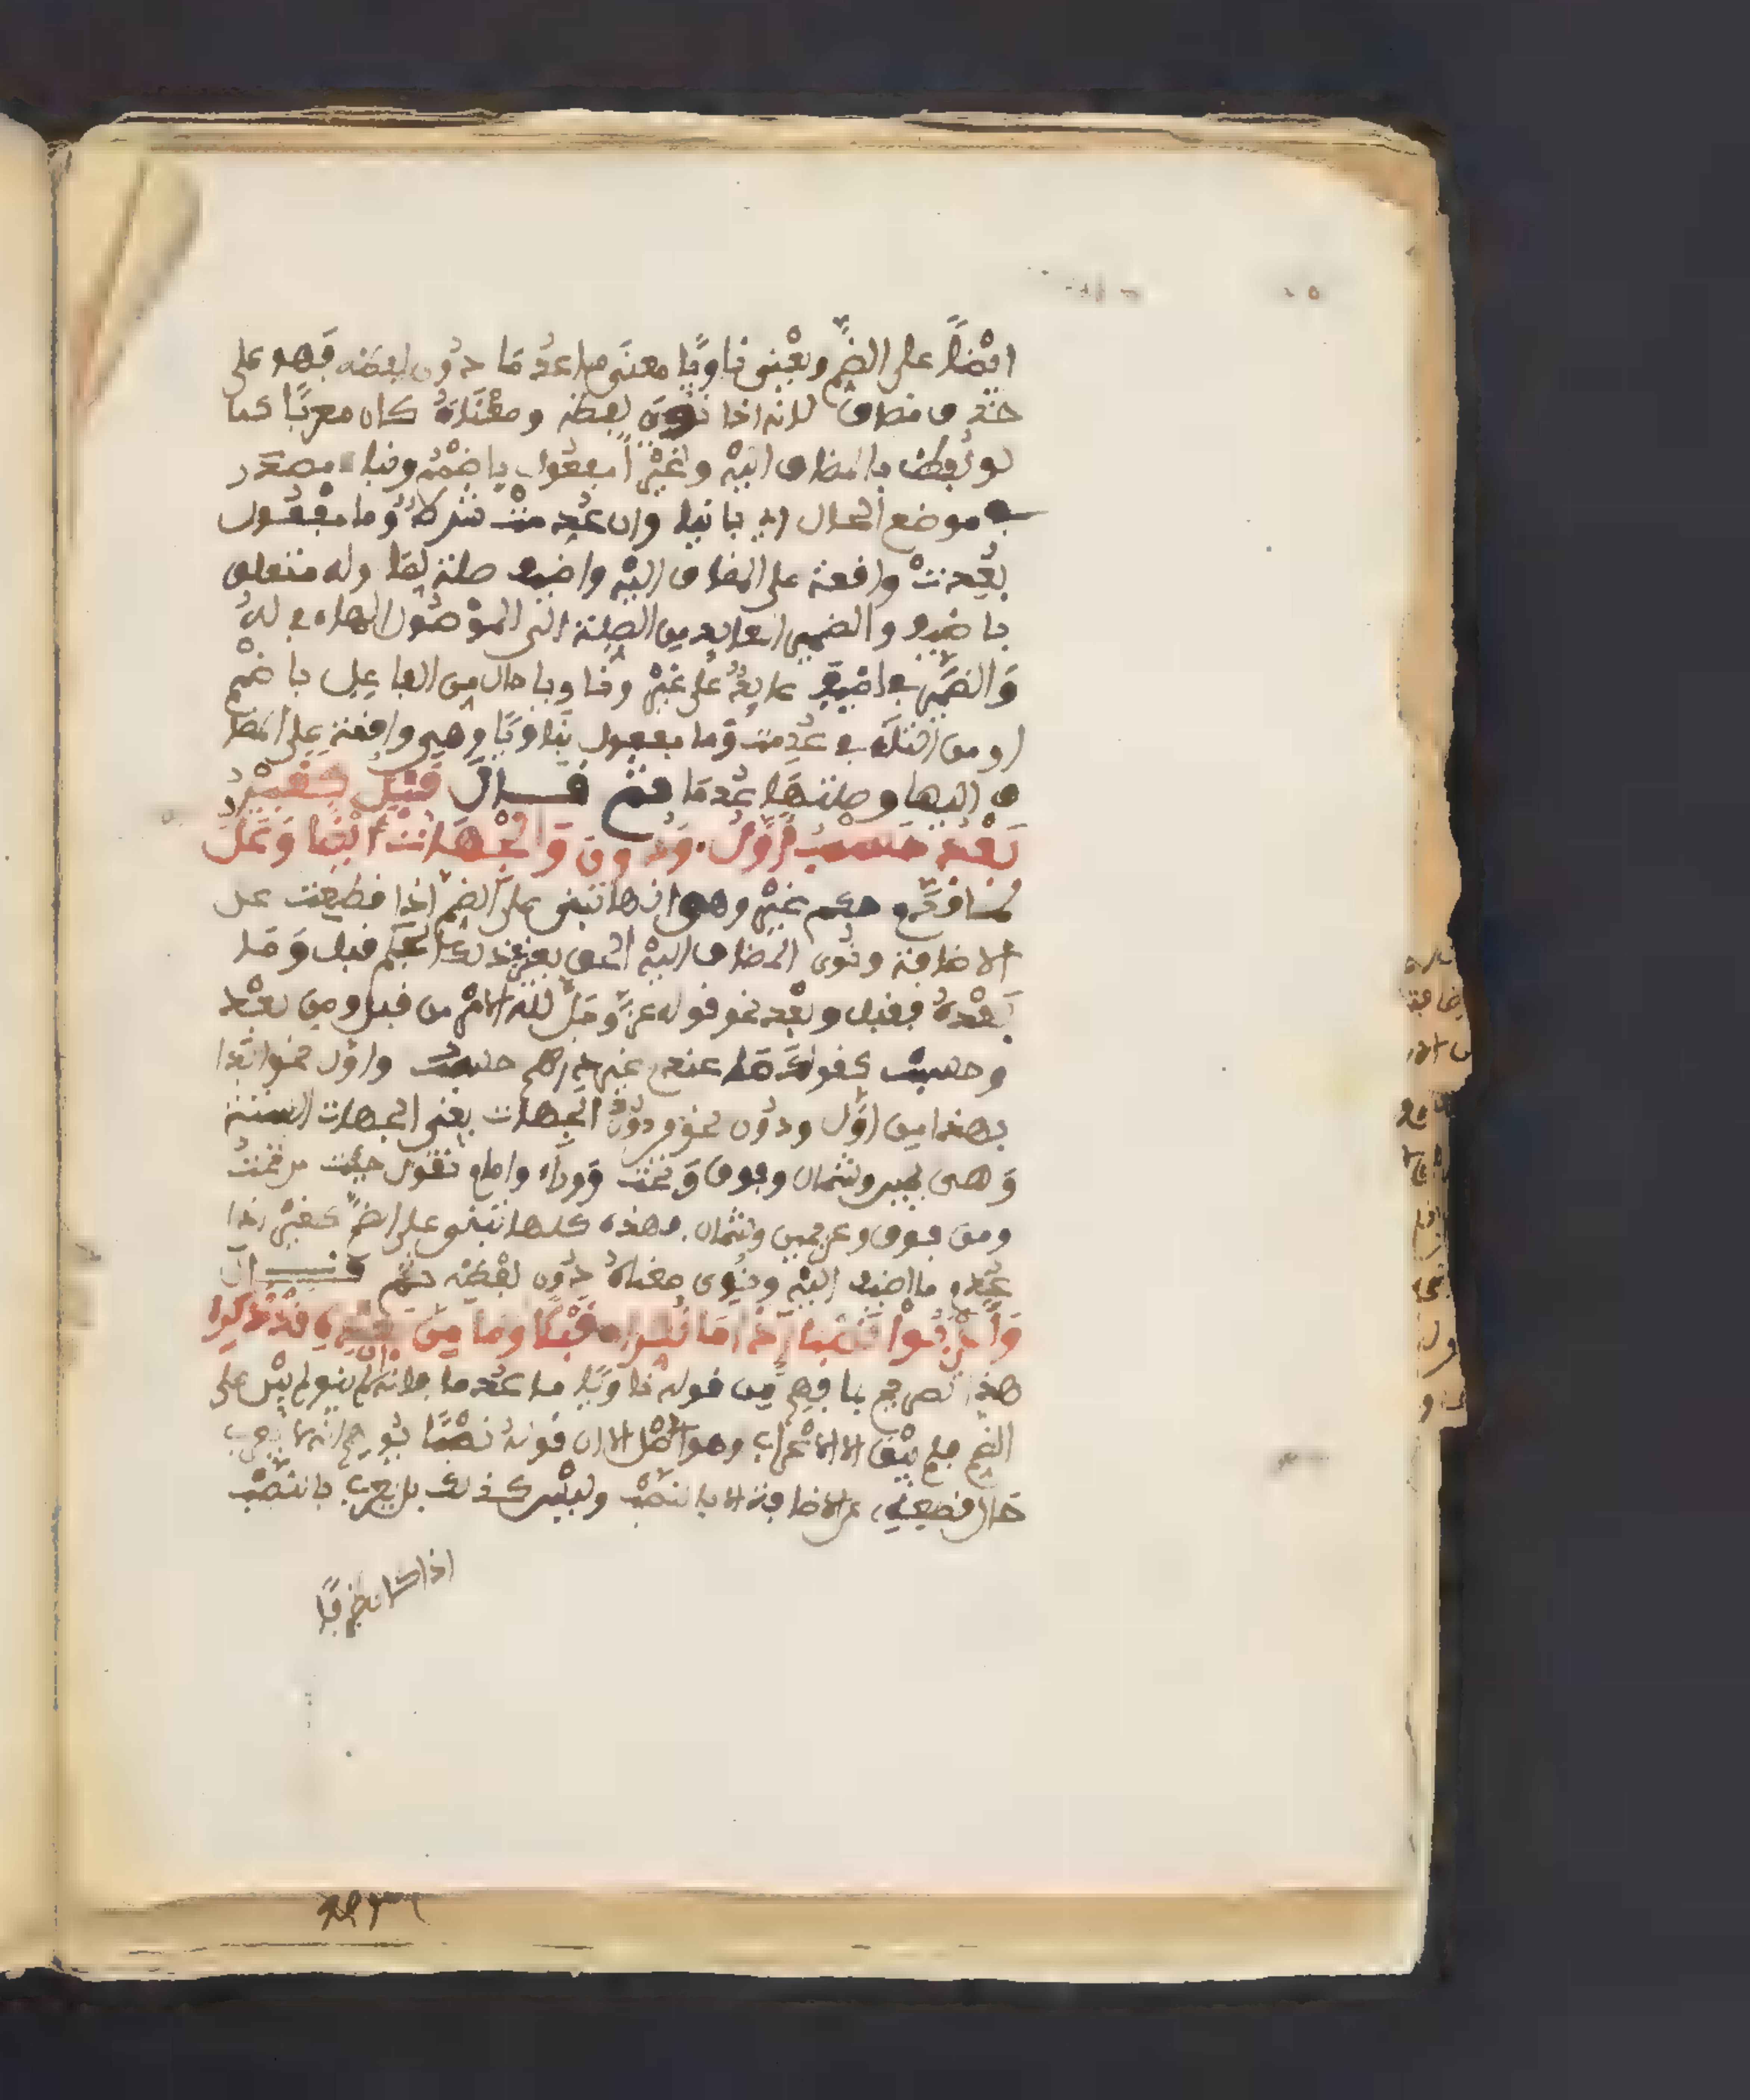 ايضًا على الضم ويعني ناويًا معنى ما عدم ما دون لفظه فهو على
حذف مضاف لانه اذا نوى لفظه ومعناه كان معربا كما
لو نطق بالمضاف اليه وغيرا مفعول باضمم وبناء مصدر
في موضع الحال اي بانيا وان عدمت شرط وما مفعول
بعدمت واقعة على المضاف اليه واضيف صلة لها وله متعلق
باضيف والضمير العايد من الصلة الى الموصول الهاء في له
والضمير في اضيف عايد على غير وناويا حال من الفاعل باضمم
او من التاء في عدمت وما مفعول بناويا وهي واقعة على المضا
ف اليها وصلتها عدما ثم قال قبل كغير
بعد حسب اول ودون والجهات ايضا وعل
لما قدم حكم غير وهو انها تبنى على الضم اذا قطعت عن
الاضافة ونوى المضاف اليه الحق بغير في ذلك الحكم قبل وما
بعده فقبل وبعد نحو قوله عز وجل لله الامر من قبل ومن بعد
وحسب كقولك ما عندي غير درهم حسب واول نحو ابدا
بهذا من اول ودون نحو من دون الجهات يعني الجهات الستة
وهي يمين وشمال وفوق وتحت ووراء وامام تقول جئت من تحت
ومن فوق وعن يمين وشمال فهذه كلها تبنى على الضم كغير اذا
عدم ما اضيف اليه ونوى معناه دون لفظه ثم قال
واعربوا نصبا اذا ما نكرا قبلا وما من بعده قد ذكرا
هذا تصريح بما فهم من قوله ناويا ما عدما فانه ان لم ينو لم يبن على
الضم فلم يبق الا الاعراب وهو الاصل الا ان قوله نصبا يوهم انها لا تعرب
حال قطعها عن الاضافة الا بالنصب وليس كذلك بل تعرب بالنصب
اذا كا نظرفا